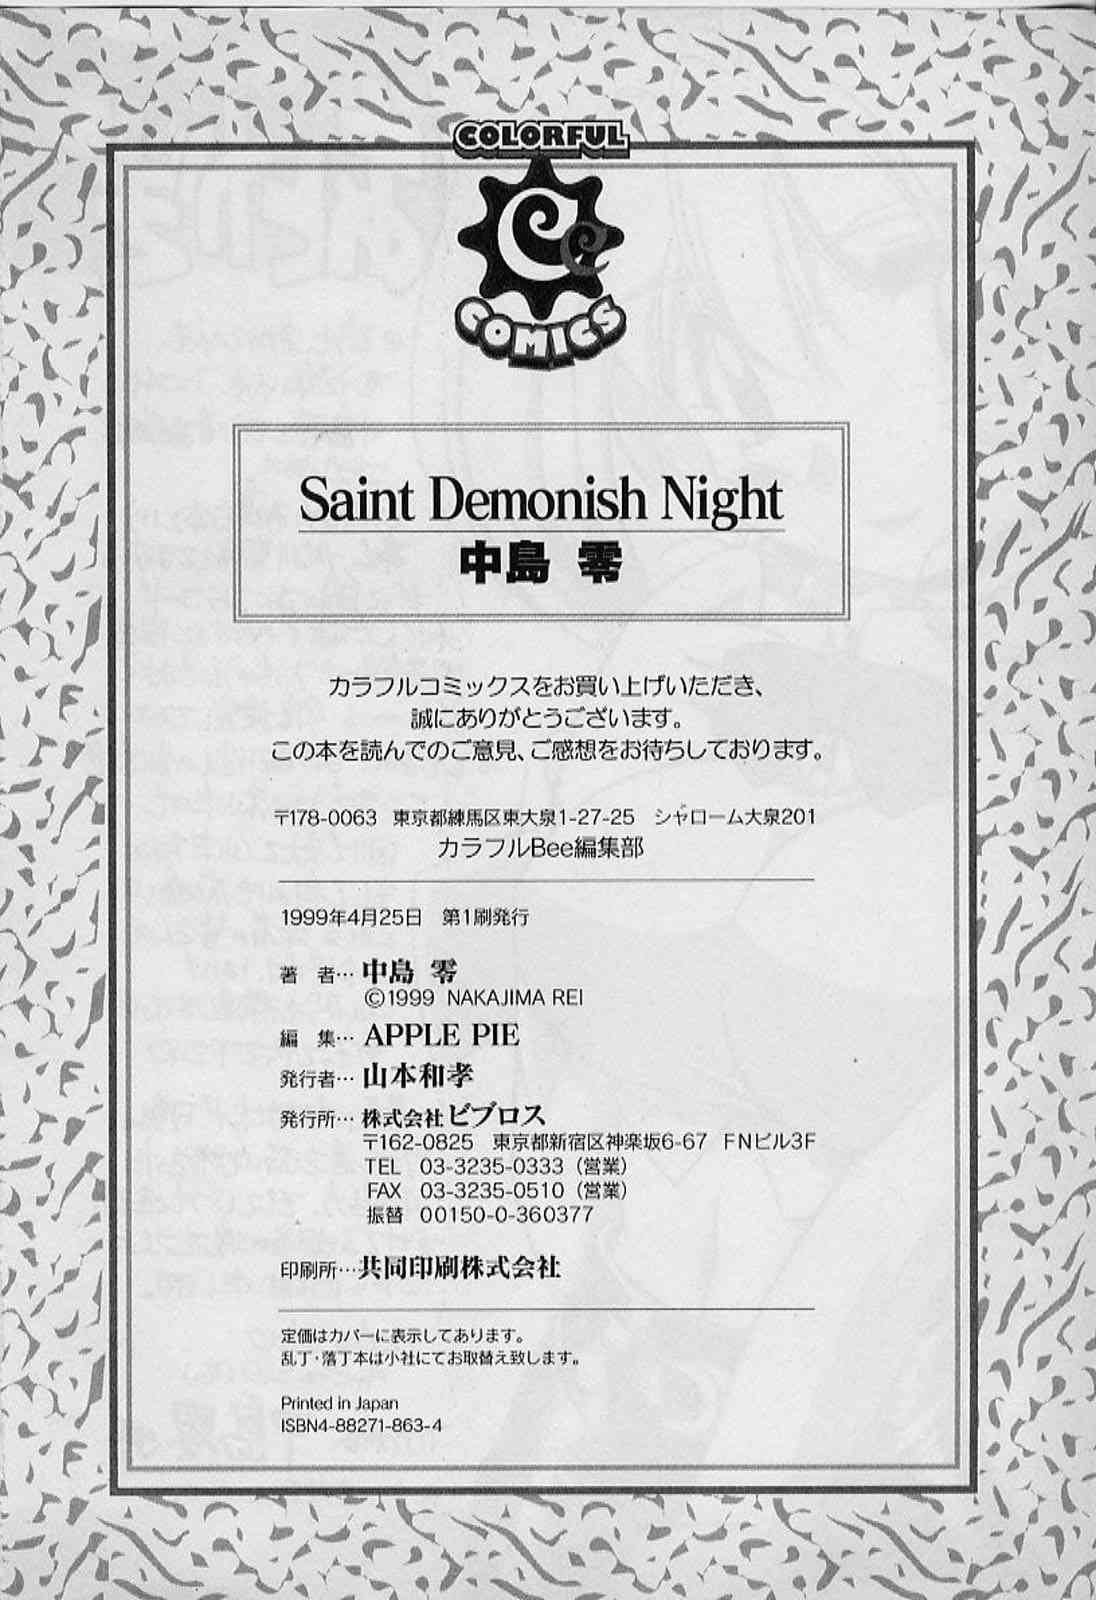 COLORFUL
Cc
COMICS
Saint Demonish Night
中島 零
カラフルコミックスをお買い上げいただき、
誠にありがとうございます。
この本を読んでのご意見、ご感想をお待ちしております。
〒178-0063 東京都練馬区東大泉1-27-25 シャローム大泉201
カラフルBee編集部
1999年4月25日 第1刷発行
著 者… 中島 零
©1999 NAKAJIMA REI
編 集… APPLE PIE
発行者… 山本和孝
発行所… 株式会社ビブロス
〒162-0825 東京都新宿区神楽坂6-67 FNビル3F
TEL 03-3235-0333（営業）
FAX 03-3235-0510（営業）
振替 00150-0-360377
印刷所…共同印刷株式会社
定価はカバーに表示してあります。
乱丁・落丁本は小社にてお取替え致します。
Printed in Japan
ISBN4-88271-863-4